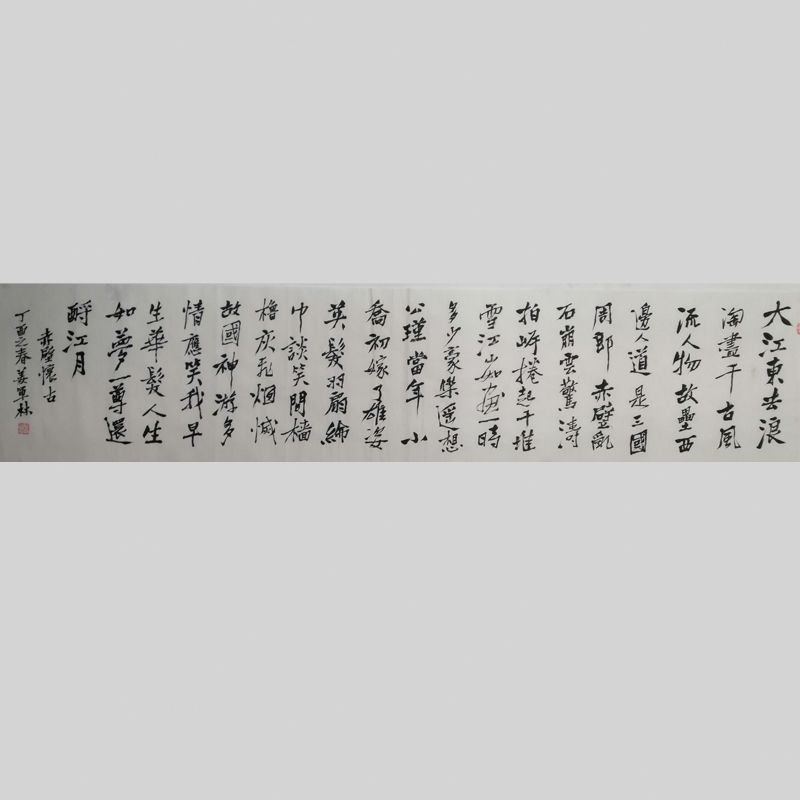 大江東去浪
淘盡千古風
流人物故壘西
邊人道是三國
周郎赤壁亂
石崩雲驚濤
拍岸捲起千堆
雪江山如畫一時
多少豪傑遥想
公瑾當年小
喬初嫁了雄姿
英發羽扇綸
巾談笑間檣
櫓灰飛烟滅
故國神游多
情應笑我早
生華髮人生
如夢一尊還
酹江月
赤壁懷古
丁酉之春姜軍林